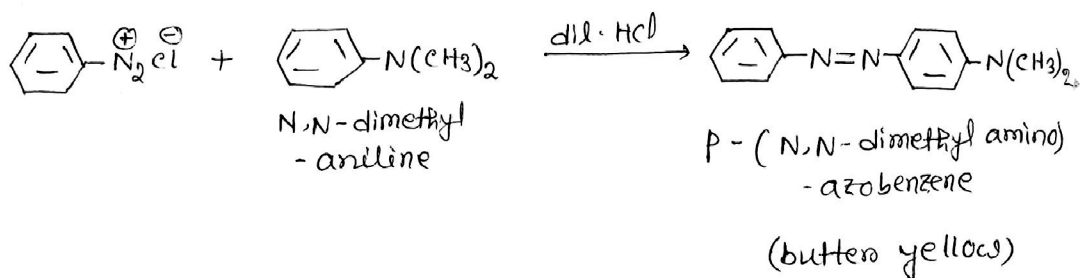 N₂⊕ Cl⊖ + N(CH3)₂ dil. HCl N=N N(CH3)₂
N,N-dimethyl
- aniline
P - (N,N-dimethyl amino)
- azobenzene
(butter yellow)